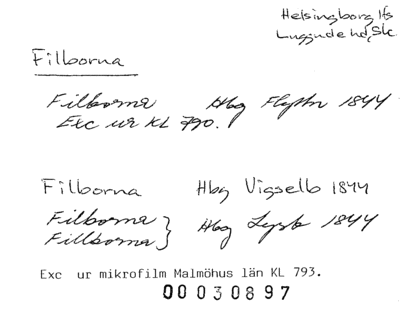 Helsingborg lfs
Luggude hd, Sk.
Filborna
Filborna Hbg Flyttn 1844
Exc ur KL 790.
Filborna Hbg Vigselb 1844
Filborna } Hbg Lysb 1844
Fillborna }
Exc ur mikrofilm Malmöhus län KL 793.
00030897